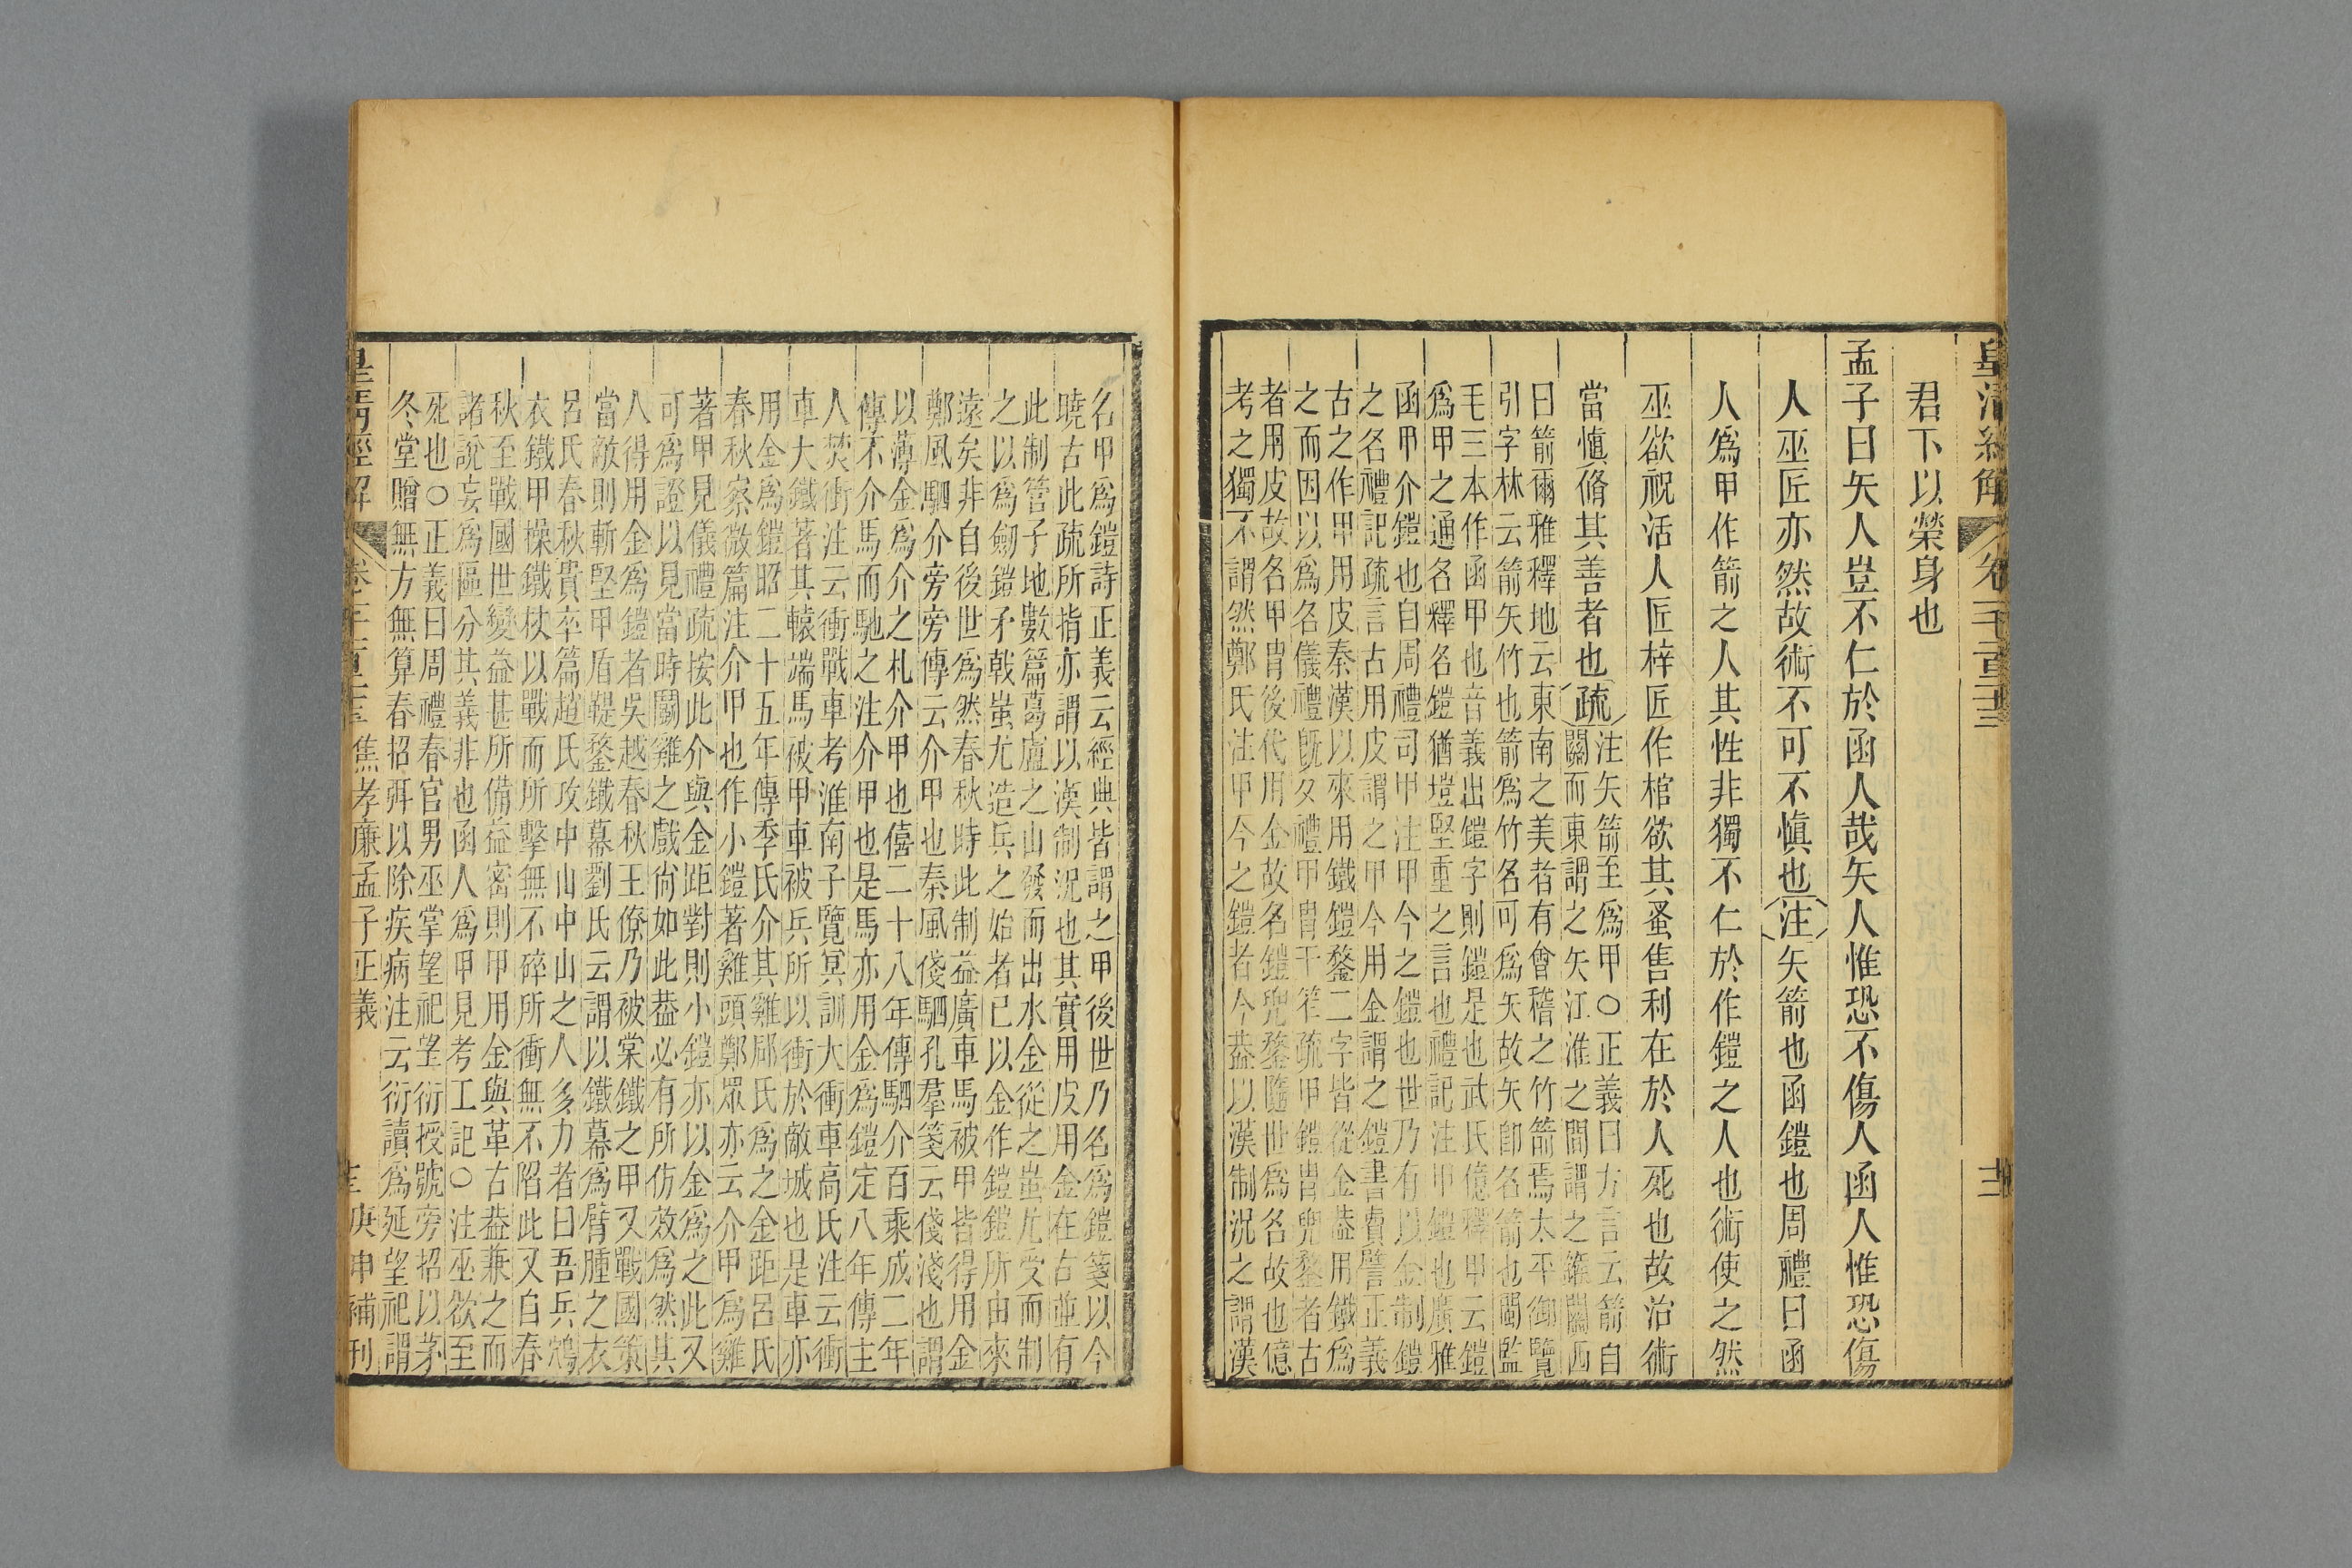 皇清經解
君下以榮身也
孟子曰矢人豈不仁於函人哉矢人惟恐不傷人函人惟恐傷
人巫匠亦然故術不可不慎也注矢箭也函鎧也周禮曰函
人爲甲作箭之人其性非獨不仁於作鎧之人也術使之然
巫欲祝活人匠梓匠作棺欲其蚤售利在於人死也故治術
當慎脩其善者也疏
注矢箭至爲甲○正義曰方言云箭自
關而東謂之矢江淮之間謂之鍭關西
曰箭爾雅釋地云東南之美者有會稽之竹箭焉太平御覽
引字林云箭矢竹也箭爲竹名可爲矢故矢卽名箭也閩監
毛三本作函甲也音義出鎧字則鎧是也武氏億釋甲云鎧
爲甲之通名釋名鎧猶塏堅重之言也禮記注甲鎧也廣雅
函甲介鎧也自周禮司甲注甲今之鎧也世乃有以金制鎧
之名禮記疏言古用皮謂之甲今用金謂之鎧書費誓正義
古之作甲用皮秦漢以來用鐵鎧鍪二字皆從金葢用鐵爲
之而因以爲名儀禮旣夕禮甲冑干笮疏甲鎧冑兜鍪者古
者用皮故名甲冑後代用金故名鎧兜鍪隨世爲名故也億
考之獨不謂然鄭氏注甲今之鎧者今葢以漢制況之謂漢
名甲爲鎧詩正義云經典皆謂之甲後世乃名爲鎧箋以今
曉古此疏所指亦謂以漢制況也其實用皮用金在古並有
此制管子地數篇葛盧之山發而出水金從之蚩尤受而制
之以爲劒鎧矛戟蚩尤造兵之始者已以金作鎧鎧所由來
遠矣非自後世爲然春秋時此制益廣車馬被甲皆得用金
鄭風駟介旁旁傳云介甲也秦風俴駟孔羣箋云俴淺也謂
以薄金爲介之札介甲也僖二十八年傳駟介百乘成二年
傳不介馬而馳之注介甲也是馬亦用金爲鎧定八年傳主
人焚衝注云衝戰車考淮南子覽冥訓大衝車高氏注云衝
車大鐵著其轅端馬被甲車被兵所以衝於敵城也是車亦
用金爲鎧昭二十五年傳季氏介其雞郈氏爲之金距呂氏
春秋察微篇注介甲也作小鎧著雞頭鄭眾亦云介甲爲雞
著甲見儀禮疏按此介與金距對則小鎧亦以金爲之此又
可爲證以見當時鬭雞之戲尙如此葢必有所仿效爲然其
人得用金爲鎧者吳越春秋王僚乃被棠鐵之甲又戰國策
當敵則斬堅甲盾鞮鍪鐵幕劉氏云謂以鐵幕爲臂脛之衣
呂氏春秋貴卒篇趙氏攻中山中山之人多力者曰吾兵鴆
衣鐵甲操鐵杖以戰而所擊無不碎所衝無不陷此又自春
秋至戰國世變益甚所備益密則甲用金與革古葢兼之而
諸說妄爲區分其義非也函人爲甲見考工記○注巫欲至
死也○正義曰周禮春官男巫掌望祀望衍授號旁招以茅
冬堂贈無方無算春招弭以除疾病注云衍讀爲延望祀謂
焦孝廉孟子正義
庚申補刊